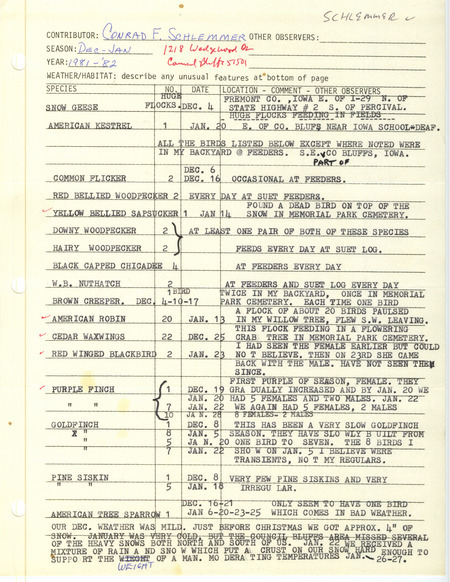 SCHLEMMER
CONTRIBUTOR: CONRAD F. SCHLEMMER OTHER OBSERVERS:
SEASON: DEC-JAN 1218 Wedgewood Dr.
YEAR: 1981-'82 Council Bluffs 51501
WEATHER/HABITAT: describe any unusual features at bottom of page
SPECIES NO. DATE LOCATION - COMMENT - OTHER OBSERVERS
HUGE FREMONT CO. ,IOWA E. OF I-29 N. OF
SNOW GEESE FLOCKS. DEC. 4 STATE HIGHWAY # 2 S. OF PERCIVAL.
HUGE FLOCKS FEEDING IN FIELDS
AMERICAN KESTREL 1 JAN. 20 E. OF CO. BLUFS NEAR IOWA SCHOOL DEAF.
ALL THE BIRDS LISTED BELOW EXCEPT WHERE NOTED WERE
IN MY BACKYARD @ FEEDERS. S.E. CO BLUFFS, IOWA.
PART OF
DEC. 6
COMMON FLICKER 2 DEC. 16 OCCASIONAL AT FEEDERS.
RED BELLIED WOODPECKER 2 EVERY DAY AT SUET FEEDERS.
FOUND A DEAD BIRD ON TOP OF THE
YELLOW BELLIED SAPSUCKER 1 JAN 14 SNOW IN MEMORIAL PARK CEMETERY.
DOWNY WOODPECKER 2 AT LEAST ONE PAIR OF BOTH OF THESE SPECIES
HAIRY WOODPECKER 2 FEEDS EVERY DAY AT SUET LOG.
BLACK CAPPED CHICADEE 4 AT FEEDERS EVERY DAY
W.B. NUTHATCH 2 AT FEEDERS AND SUET LOG EVERY DAY
1 BIRD TWICE IN MY BACKYARD, ONCE IN MEMORIAL
BROWN CREEPER. DEC. 4-10-17 PARK CEMETERY. EACH TIME ONE BIRD
A FLOCK OF ABOUT 20 BIRDS PAULSED
AMERICAN ROBIN 20 JAN. 13 IN MY WILLOW TREE, FLEW S.W. LEAVING.
THIS FLOCK FEEDING IN A FLOWERING
CEDAR WAXWINGS 22 DEC. 25 CRAB TREE IN MEMORIAL PARK CEMETERY.
I HAD SEEN THE FEMALE EARLIER BUT COULD
RED WINGED BLACKBIRD 2 JAN. 23 NO T BELIEVE. THEN ON 23RD SHE CAME
BACK WITH THE MALE. HAVE NOT SEEN THEM
SINCE.
FIRST PURPLE OF SEASON, FEMALE. THEY
PURPLE FINCH 1 DEC. 19 GRA DUALLY INCREASED AND BY JAN. 20 WE
JAN. 20 HAD 5 FEMALES AND TWO MALES. JAN. 22
" " 7 JAN. 22 WE AGAIN HAD 5 FEMALES, 2 MALES
10 JA N. 28 8 FEMALES- 2 MALES
GOLDFINCH 1 DEC. 8 THIS HAS BEEN A VERY SLOW GOLDFINCH
" 8 JAN. 5 SEASON. THEY HAVE SLO WLY B UILT FROM
" 5 JA N. 20 ONE BIRD TO SEVEN. THE 8 BIRDS I
7 JAN. 22 SHO W ON JAN. 5 I BELIEVE WERE
TRANSIENTS, NO T MY REGULARS.
PINE SISKIN 1 DEC. 8 VERY FEW PINE SISKINS AND VERY
" " 5 JAN. 18 IRREGU LAR.
DEC. 16-21 ONLY SEEM TO HAVE ONE BIRD
AMERICAN TREE SPARROW 1 JAN 6-20-23-25 WHICH COMES IN BAD WEATHER.
OUR DEC. WEATHER WAS MILD. JUST BEFORE CHRISTMAS WE GOT APPROX. 4" OF
SNOW. JANUARY WAS VERY COLD, BUT THE COUNCIL BLUFFS AREA MISSED SEVERAL
OF THE HEAVY SNOWS BOTH NORTH AND SOUTH OF US. JAN. 22 WE RECEIVED A
MIXTURE OF RAIN A ND SNO W WHICH PUT A CRUST ON OUR SNOW HARD ENOUGH TO
SUPPO RT THE WEIGHT OF A MAN. MO DERA TING TEMPERATURES JAN. 26-27.
WEIGHT